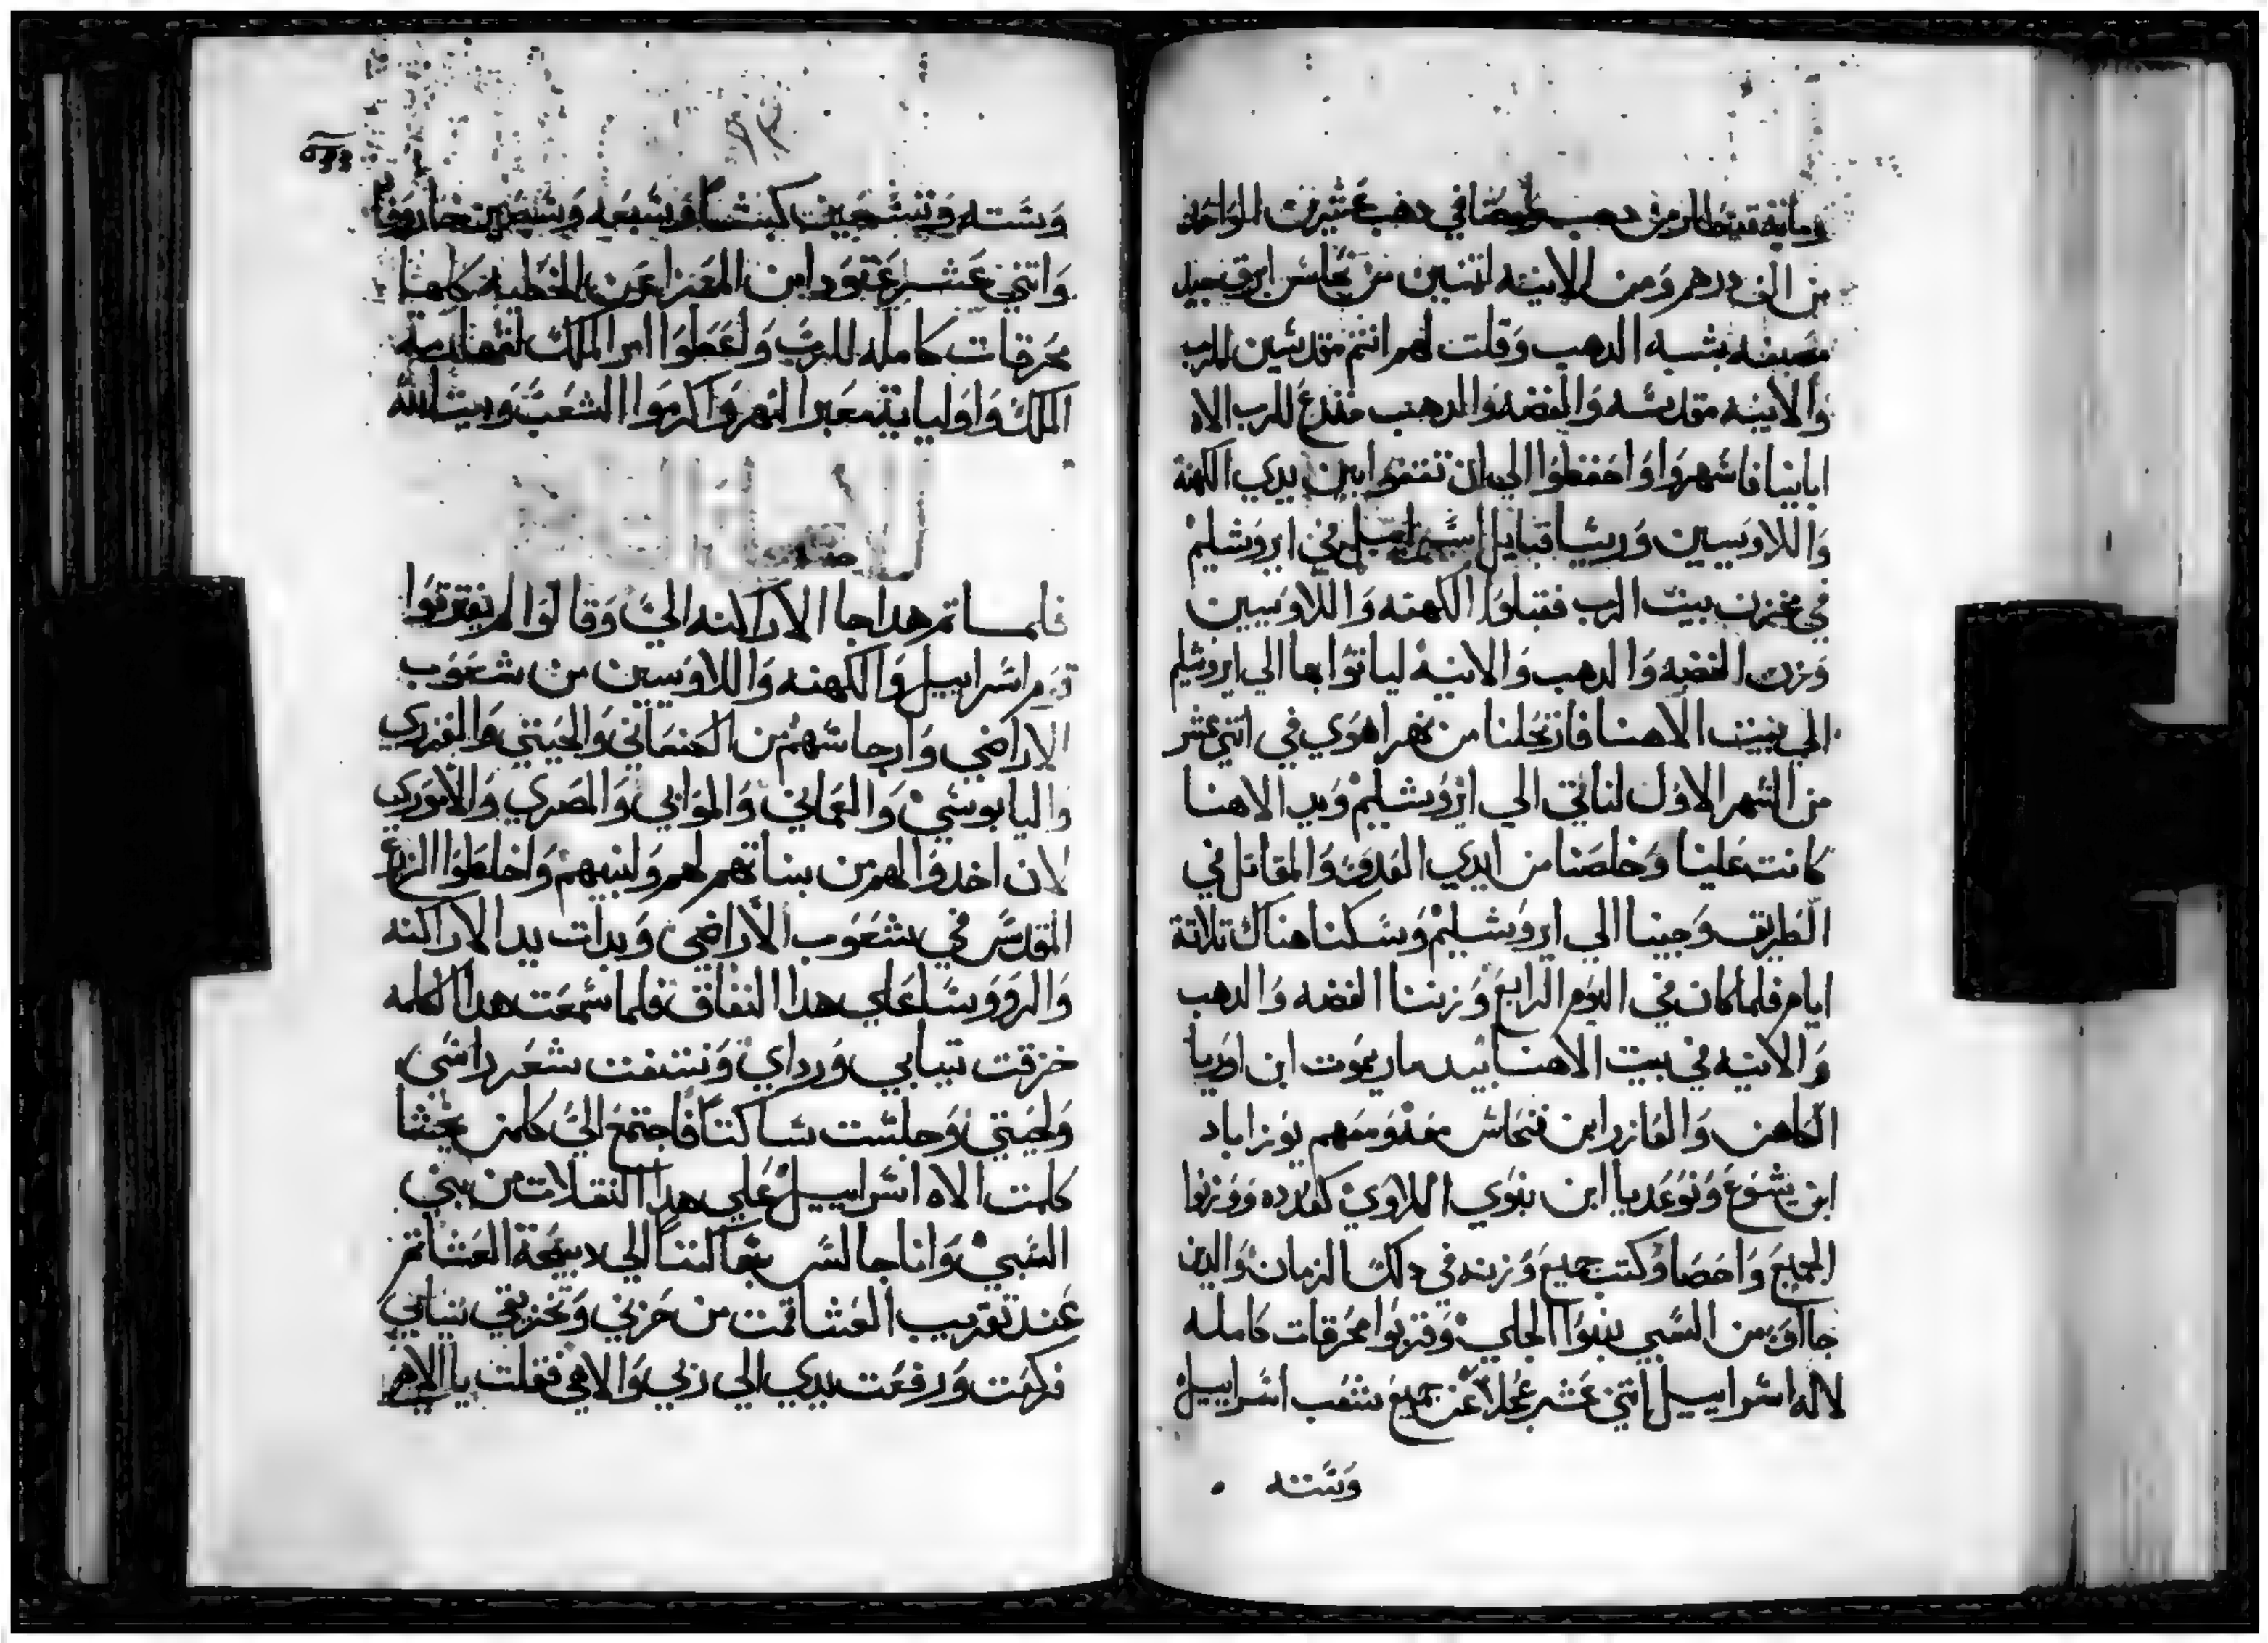 ومائة قنطار من دهب في دهب عشرين الواحد
من الف درهم ومن الانيه اتنين من نحاس ابرق جيل
مصبغه بشبه الدهب وقلت لهم انتم مقدسين للرب
والانيه مقدسه والفضه والدهب للرب الاه
اباينا فاسهروا واحفظوا الي ان بين يدي الكهنة
واللاويين وريسا قبايل اسراييل في ايروشليم
في مخزن بيت الرب فقبلوا الكهنه واللاويين
وزن الفضه والدهب والانيه لياتوا بها الي ايروشليم
الي بيت الاهنا فارتحلنا من نهر اهوي في اتني عشر
من الشهر الاول لناتي الي ايروشليم ويد الاهنا
كانت علينا وخلصنا من ايدي العدو والمقاتل في
الطريق وجينا الي ايروشليم وسكنا هناك تلاتة
ايام فلما كان في اليوم الرابع وزننا الفضه والدهب
والانيه في بيت الاهنا بيد ماريموت ابن اوريا
الكاهن والعازر ابن فنحاس معه ومعهم يوزاباد
ابن يشوع ونوعديا ابن بنوي اللاوي ووزنوا
الجميع واحصا وكتب جميع وزنه في دلك الزمان والدين
جااو من السبي بنوا الجلي وقربوا محرقات كامله
لاله اسراييل اتني عشر عجلا عن جميع شعب اسراييل
وسته
٩٢
وسته وتسعين كبشا وسبعه وسبعين خاروفا
واتني عشر عتود من المعزا عن الخطيه كلها
محرقات كامله للرب واعطوا امر الملك
الملك واوليا ية معبر النهر واكرموا الشعب وبيت الله
فلما تم هدا جا الاراكنه الي وقالوا لم يفترقوا
قوم اسراييل والكهنه واللاويين من شعوب
الاراضي وارجاسهم من الكنعاني والحيتي والفرزي
واليابوسي والعماني والموابي والمصري والاموري
لان اخدوا لهم من بناتهم لهم ولبنيهم واخلطوا الزرع
المقدس في شعوب الاراضي وبدات يد الاراكنه
والرووسا علي هدا النفاق فلما سمعت هدا الكلمه
خزقت تيابي ورداي ونتفت شعر راسي
ولحيتي وجلست ساكتا فاجتمع الي كلمن يخشا
كلمت الاه اسراييل علي هدا النقلات من بني
السبي وانا جالس الي دبيحة العشا تم
عند تقريب العشا قمت من حزني وتخزيقي تيابي
فركعت ورفعت يدي الي ربي والاهي فقلت يا الاهي